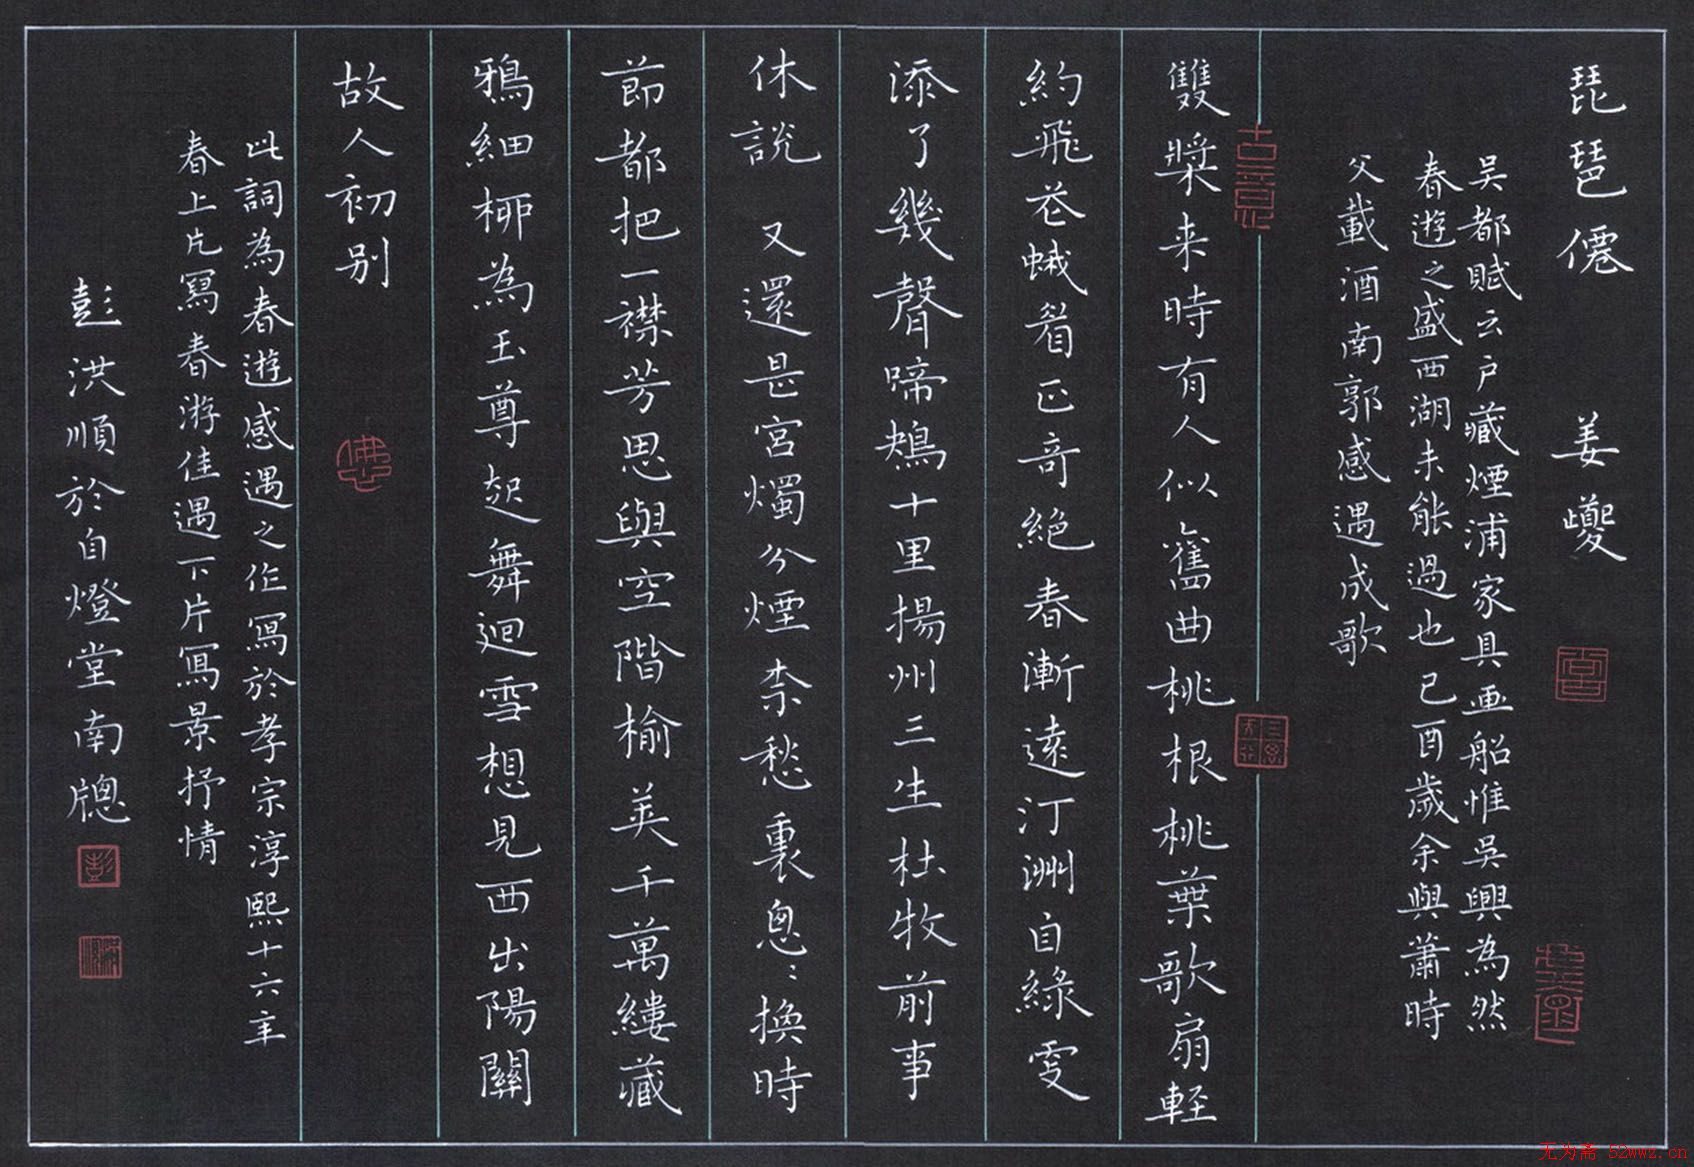 琵琶僊 姜夔
吳都賦云户藏煙浦家具画船惟吳興為然
春遊之盛西湖未能過也己酉歲余與蕭時
父載酒南郭感遇成歌
雙槳来時有人似舊曲桃根桃葉歌扇輕
約飛花蛾眉正奇絕春漸遠汀洲自綠更
添了幾聲啼鴂十里揚州三生杜牧前事
休說 又還是宮燭分煙柰愁裏匆〻換時
節都把一襟芳思與空階榆莢千萬縷藏
鴉細柳為玉尊起舞迴雪想見西出陽關
故人初别
此詞為春遊感遇之作寫於孝宗淳熙十六年
春上片寫春游佳遇下片寫景抒情
彭洪順於自燈堂南牕
彭
无为斋 52wwz.cn